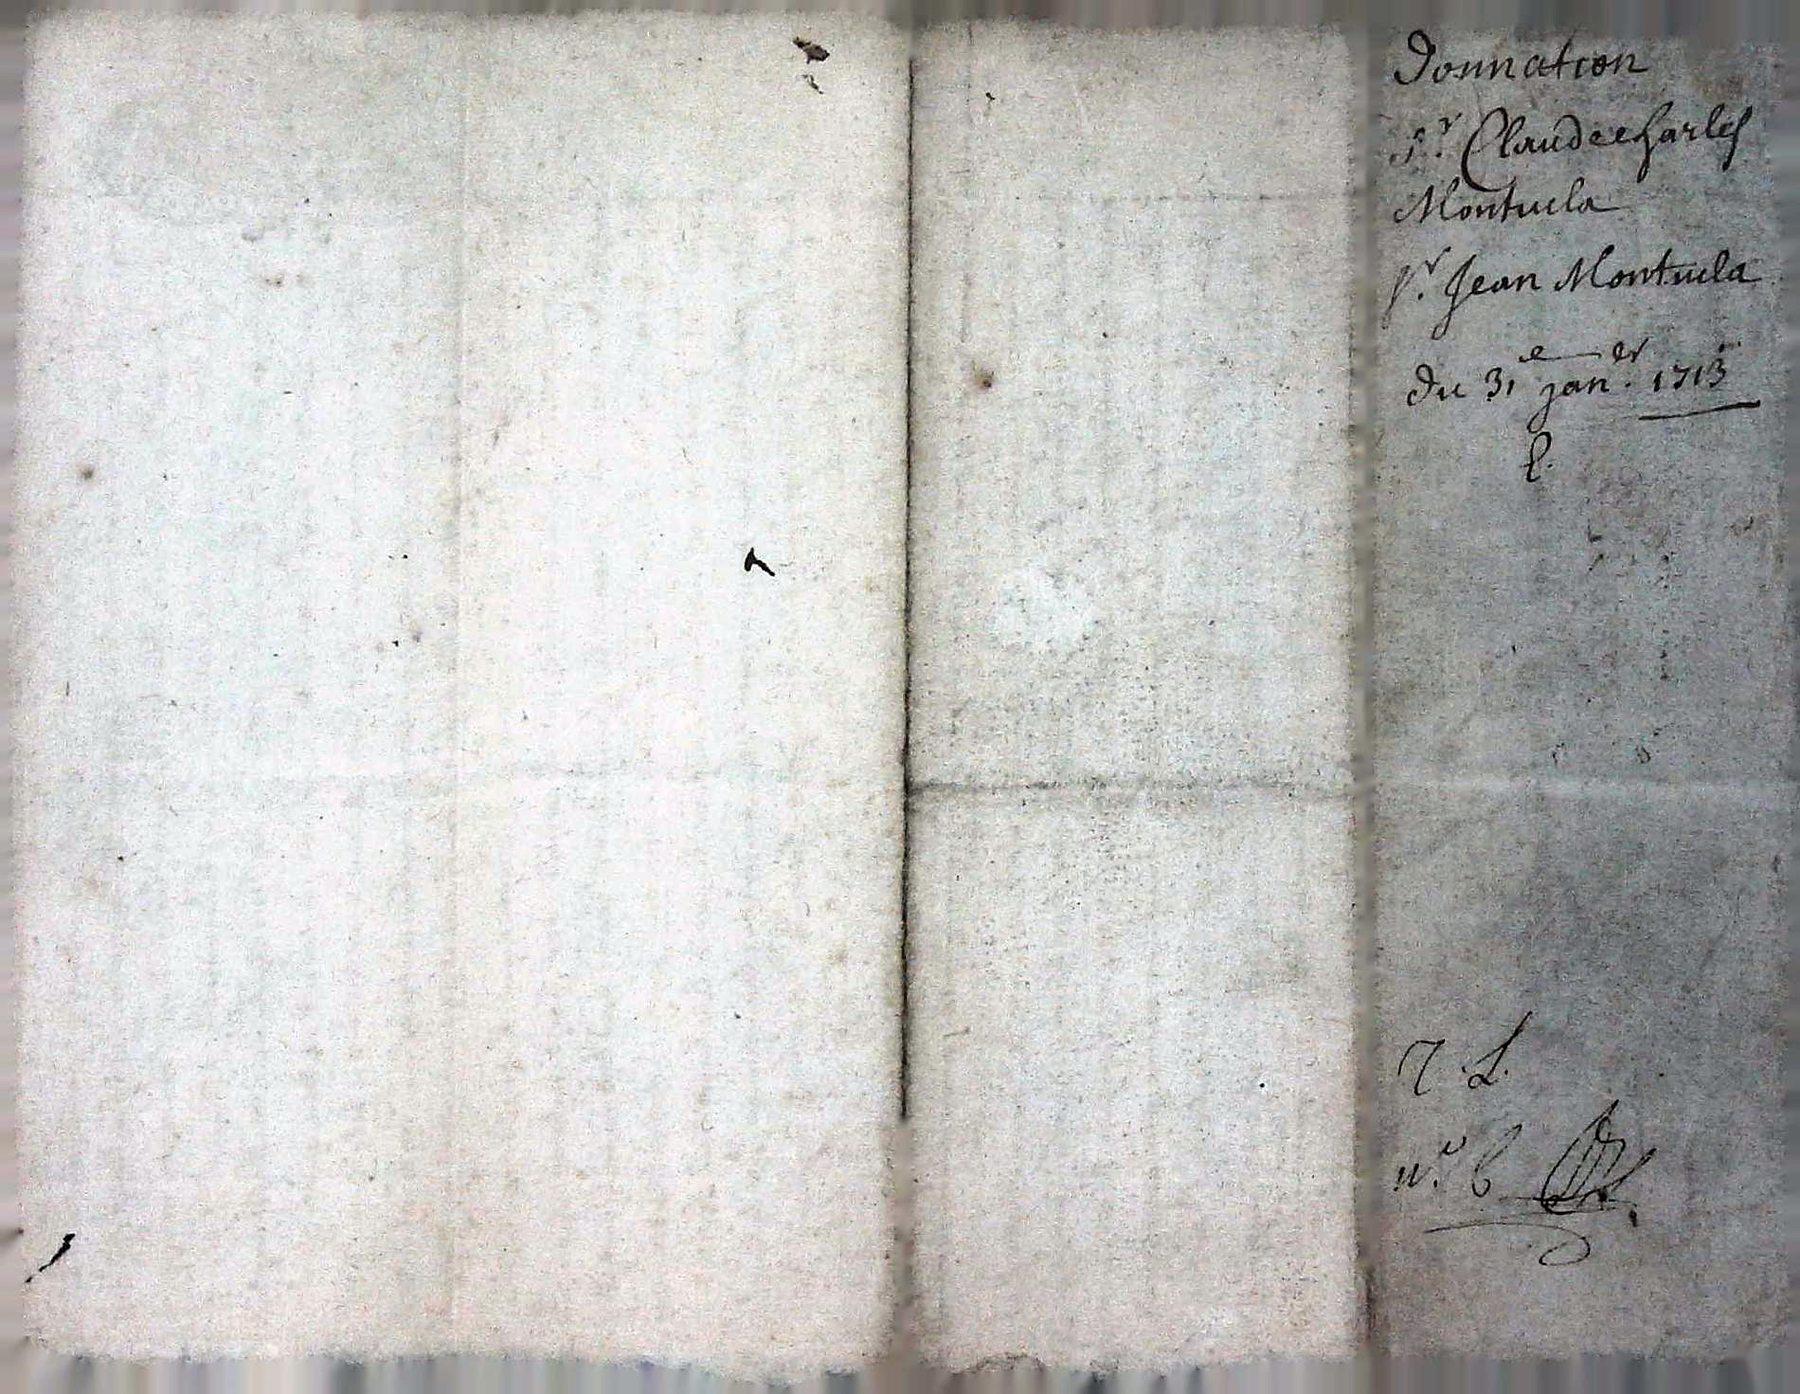 Donnation
Sr. Claude charles
Montucla
Sr. Jean Montucla
Du 31e janer. 1713
E.
7. L.
no. 6